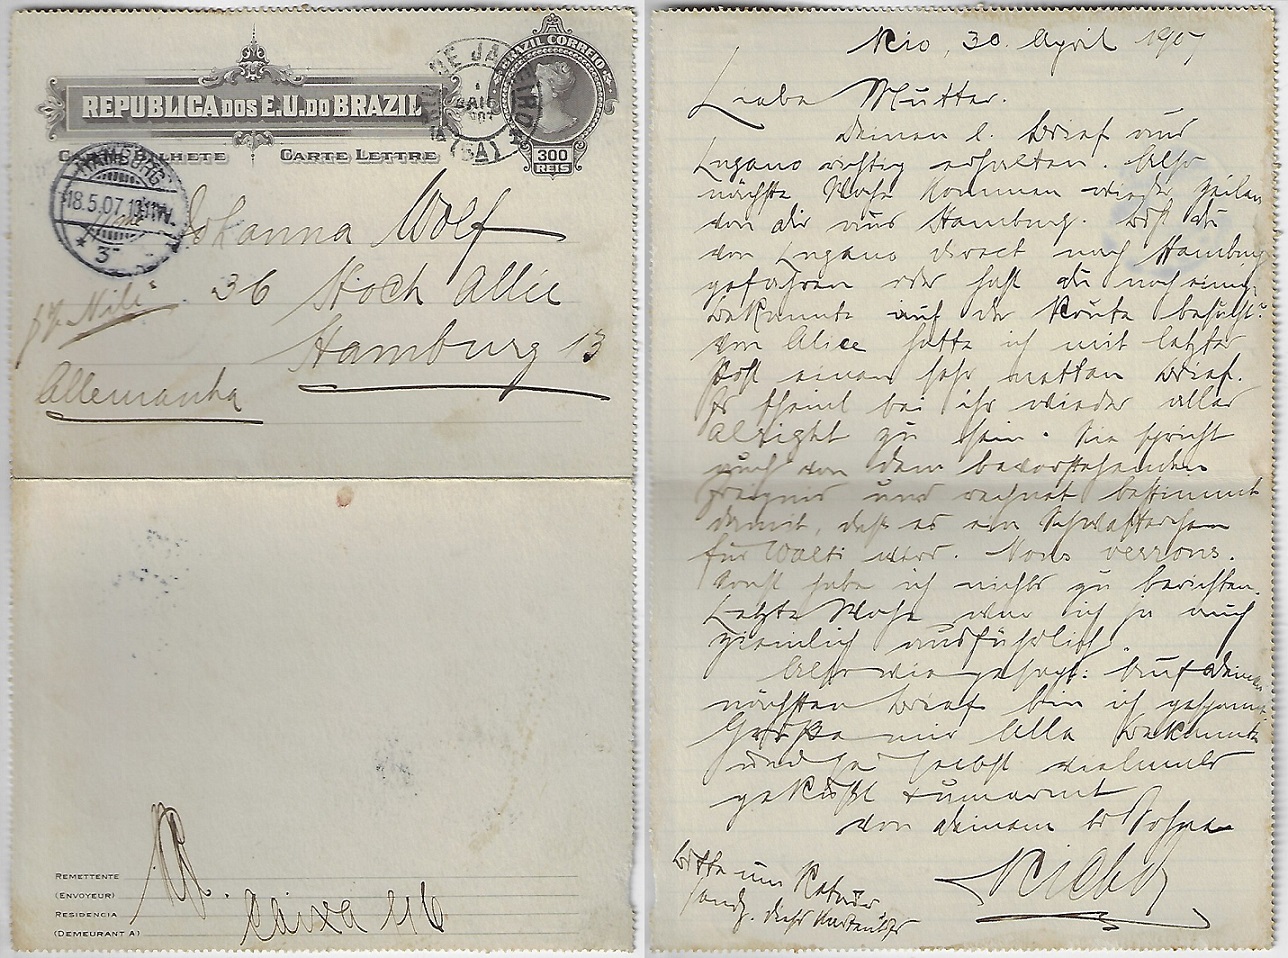 REPUBLICA DOS E.U. DO BRAZIL
BRAZIL CORREIO
300
REIS
RIO DE JANEIRO
1
MAIO
907
(5A)
CARTE LETTRE
HAMBURG
18.5.07.
* 3
Johanna Wolf
36 Hoch Allée
Hamburg 13
Allemanha
REMETTENTE
(ENVOYEUR)
RESIDENCIA
(DEMEURANT A)
Caixa 416
Rio, 30. April 1907
Liebe Mutter.
Deinen l. Brief aus
Lugano richtig erhalten. Also
nächste Woche kommen wieder Zeilen
von dir aus Hamburg. Bist du
von Lugano direct nach Hamburg
gefahren oder hast du noch einige
Bekannte auf der Route besucht?
Von Alice hatte ich mit letzter
Post einen sehr netten Brief.
Es scheint bei ihr wieder alles
alright zu sein. Sie spricht
auch von dem bevorstehenden
Ereignis und rechnet bestimmt
damit, daß es ein Schwesterchen
für Walti wird. Nous verrons.
Sonst habe ich nichts zu berichten.
Letzte Woche war ich ja auch
ziemlich ausführlich.
Also wie gesagt: Auf deinen
nächsten Brief bin ich gespannt
Grüße mir Alle Bekannte
und sei selbst vielmals
geküßt & umarmt
von deinem Sohne
Bitte um